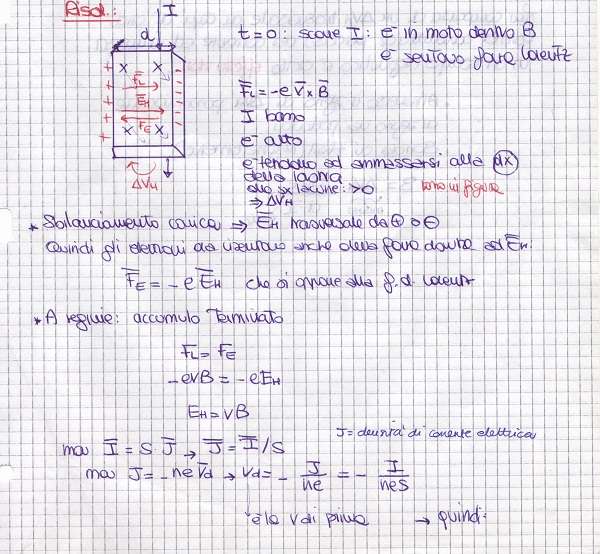 Risol.:
I
d
t=0: scorre I: e⁻ in moto dentro B
e⁻ sentono forza Lorentz
+ x x -
F_L
E_H
F_E
x x
ΔV_H
F̅_L = -e V̅ x B̅
I basso
e⁻ alto
e⁻ tendono ad ammassarsi alla dx
della lastra
alla sx lacune: >0
come in figura
⇒ ΔV_H
* Sbilanciamento carica ⇒ E̅_H trasversale da ⊕ a ⊖
Quindi gli elettroni da risentono anche della forza dovuta ad E̅_H.
F̅_E = -e E̅_H che si oppone alla f.d. Lorentz
* A regime: accumulo terminato
F_L = F_E
-evB = -eE_H
E_H = vB
J = densità di corrente elettrica
ma I̅ = S·J̅ → J̅ = I̅/S
ma J = -ne v̅d → vd = - J/ne = - I/neS
è la v di prima → quindi: